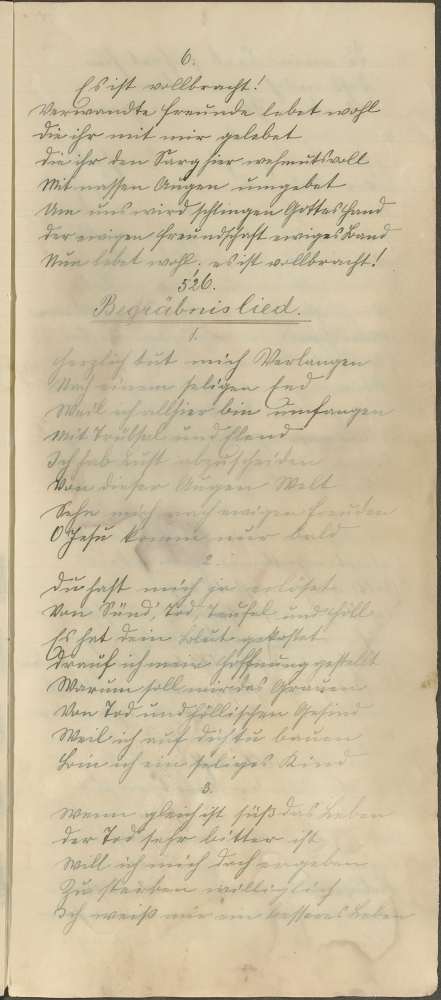 6.
Es ist vollbracht!
Verwandte Freunde lebet wohl
Die ihr mit mir gelebet
Die ihr den Sarg hier wehmutsvoll
Mit nassen Augen umgebet
Um uns wird schlingen Gottes Hand
Der ewigen Freundschaft ewiges Band
Nun lebet wohl. es ist vollbracht!
526.
Begräbnislied.
1.
Herzlich tut mich Verlangen
Nach einem seligen End
Weil ich allhier bin umfangen
Mit Trübsal und Elend
Ich hab Lust abzuscheiden
Von dieser Augen Welt
Sehn mich nach ewigen Freuden
O Jesu komm nur bald
2.
Du hast mich ja erlöset
Von Sünd, Tod, Teufel und Höll
Es hat dein Blut gekostet
Drauf ich mein Hoffnung gestellt
Warum soll mir das Grauen
Von Tod und höllischen Gesind
Weil ich auf dich tu bauen
Bin ich ein seliges Kind
3.
Wenn gleich ist süß das Leben
Der Tod sehr bitter ist
Will ich mich doch ergeben
Zu sterben williglich
Ich weiß mir ein besseres Leben